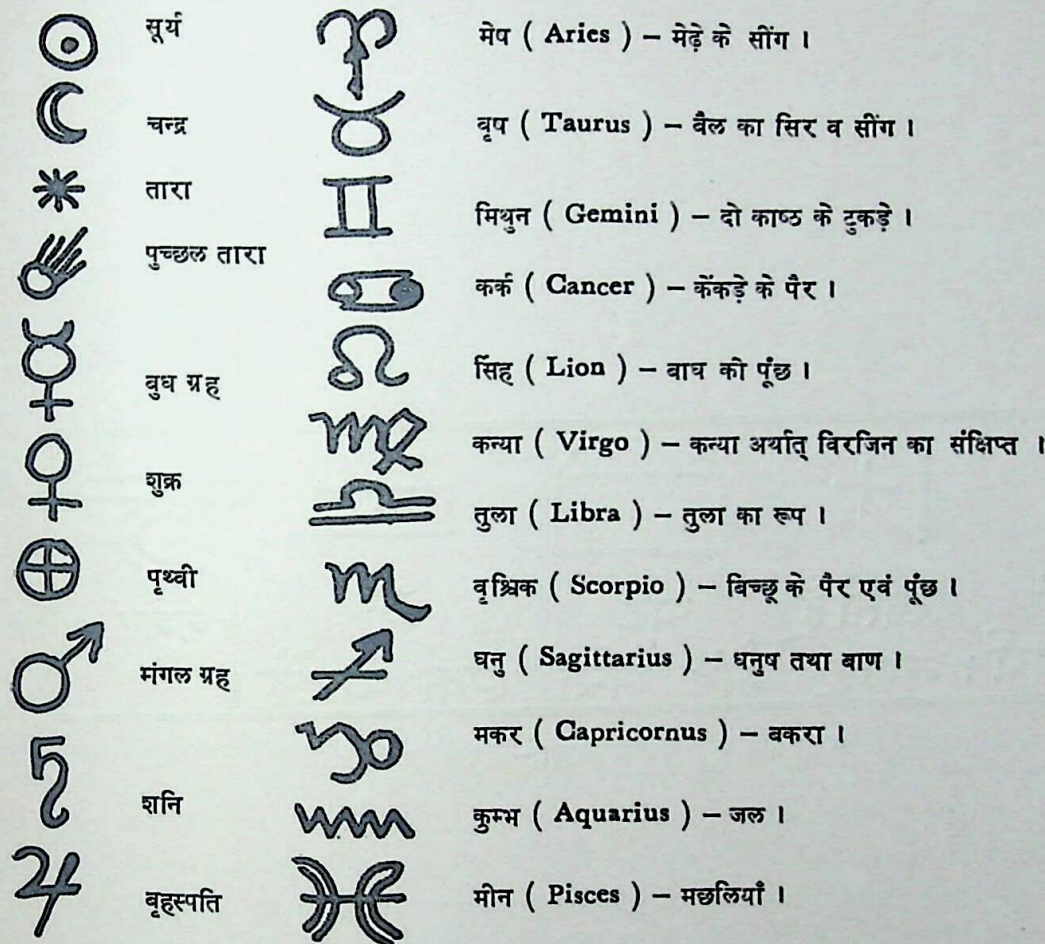 सूर्य
चन्द्र
तारा
पुच्छल तारा
बुध ग्रह
शुक्र
पृथ्वी
मंगल ग्रह
शनि
बृहस्पति
मेष ( Aries ) – मेढ़े के सींग ।
वृष ( Taurus ) – बैल का सिर व सींग ।
मिथुन ( Gemini ) – दो काष्ठ के टुकड़े ।
कर्क ( Cancer ) – केंकड़े के पैर ।
सिंह ( Lion ) – बाघ की पूंछ ।
कन्या ( Virgo ) – कन्या अर्थात् विरजिन का संक्षिप्त ।
तुला ( Libra ) – तुला का रूप ।
वृश्चिक ( Scorpio ) – बिच्छू के पैर एवं पूँछ ।
धनु ( Sagittarius ) – धनुष तथा बाण ।
मकर ( Capricornus ) – बकरा ।
कुम्भ ( Aquarius ) – जल ।
मीन ( Pisces ) – मछलियाँ ।